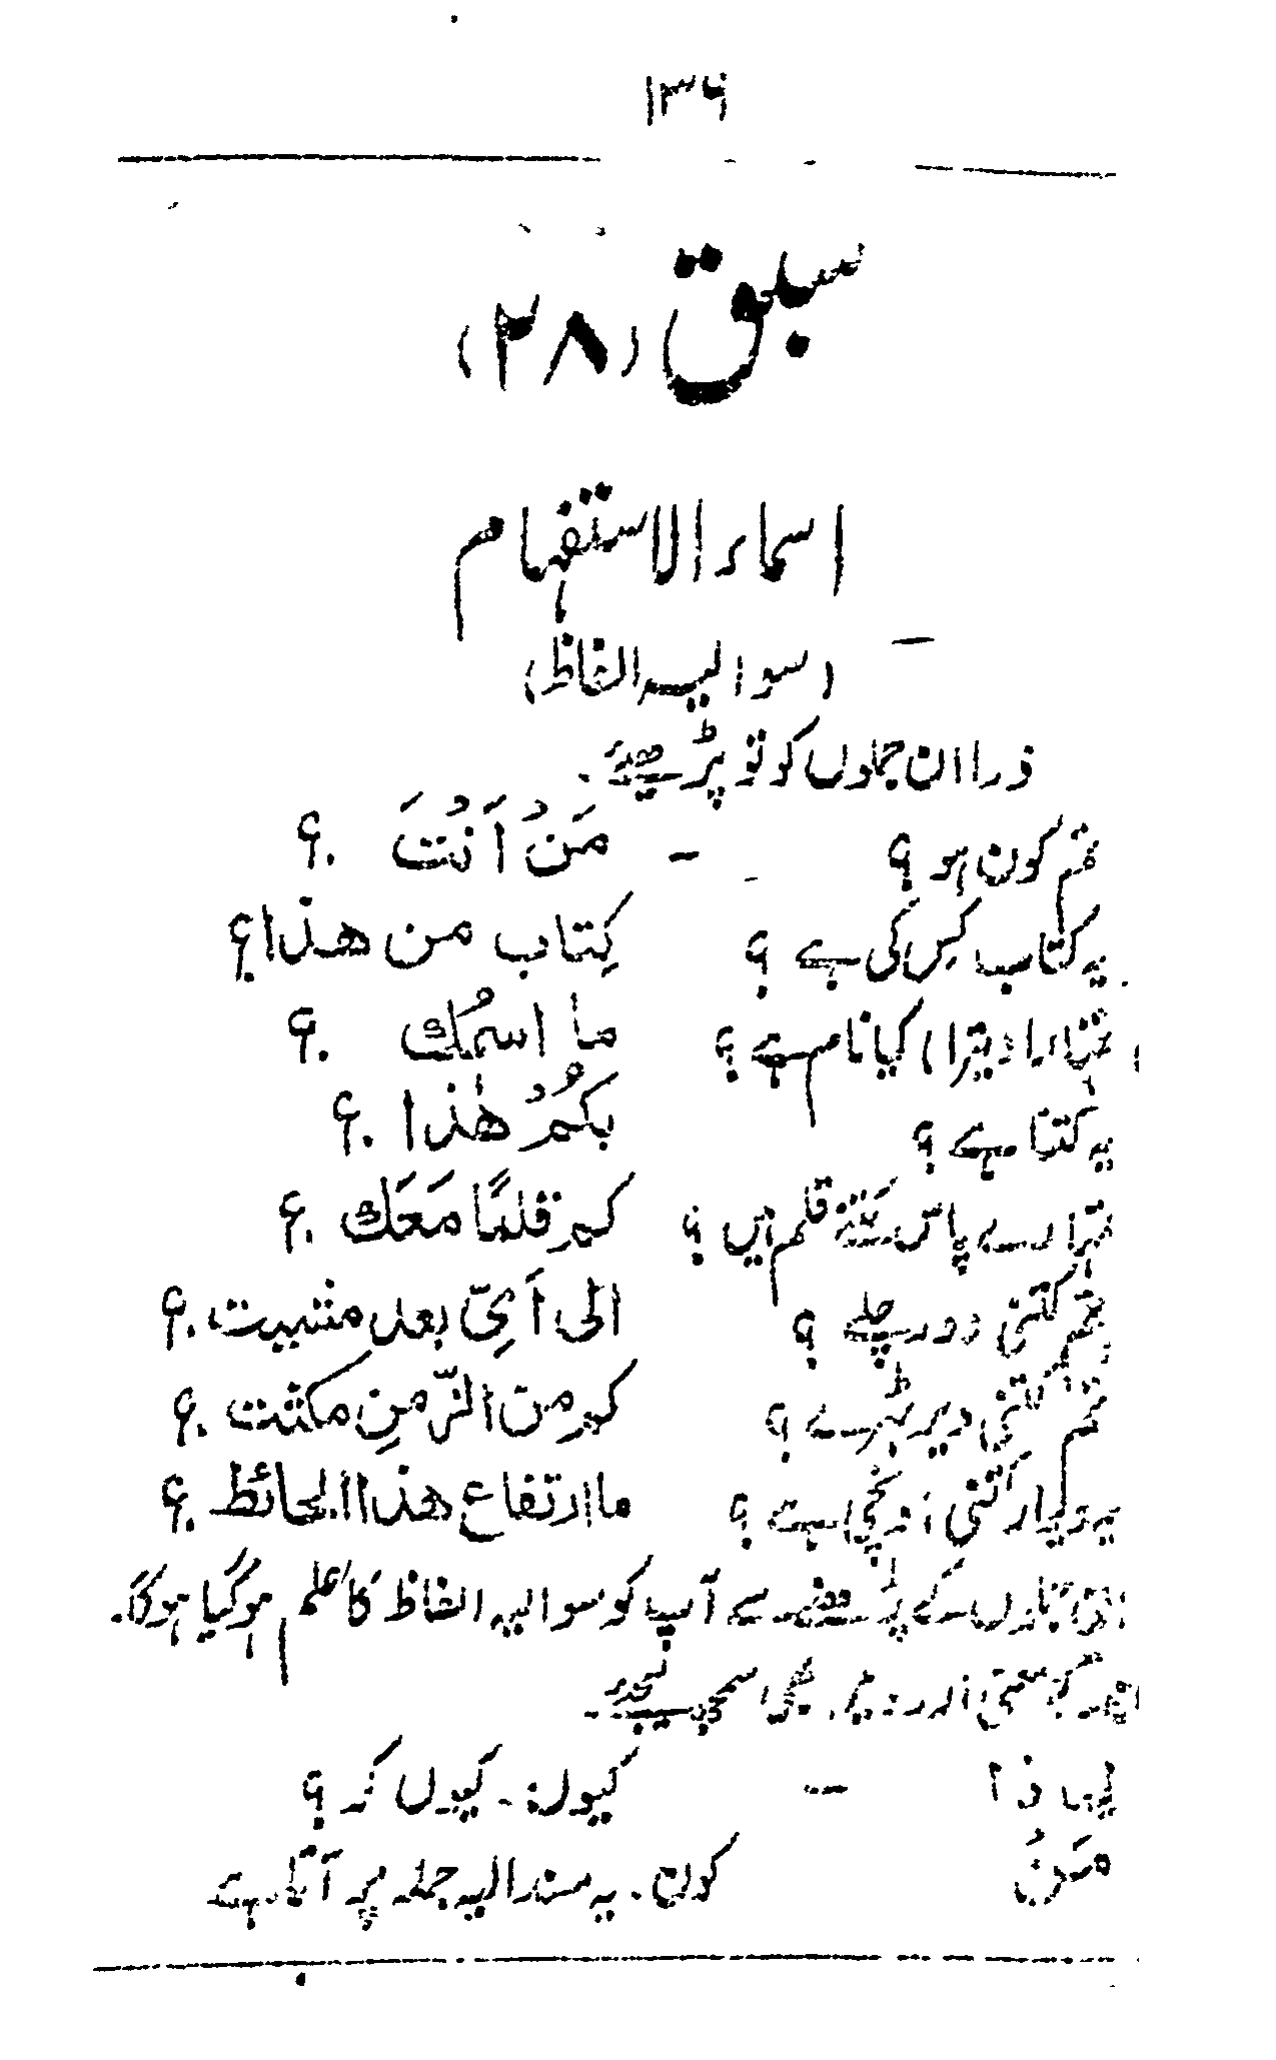 ۱۳۶
سبق (۲۸)
اسماء الاستفہام
(سوالیہ الفاظ)
ذرا ان جملوں کو تو پڑھیئے۔
تم کون ہو ؟ - مَنْ اَنْتَ ؟
یہ کتاب کس کی ہے ؟ کِتاب من هذا ؟
تمہارا (تیرا) کیا نام ہے ؟ ما اسمُك ؟
یہ کتنا ہے ؟ بکُمْ هٰذا ؟
تمہارے پاس کتنے قلم ہیں ؟ کم قلمًا مَعَك ؟
تم کتنی دور چلے ؟ الی اَیِّ بعد مشیت ؟
تم کتنی دیر ٹہرے ؟ کم من الزّمنِ مکثت ؟
یہ دیوار کتنی اونچی ہے ؟ ما ارتفاع هذا الحائط ؟
ان جملوں کے پڑھنے سے آپ کو سوالیہ الفاظ کا علم ہو گیا ہوگا۔
معنی اور سمجھ لیجئے۔
لماذا - کیوں :۔ کیوں کہ ؟
مَنْ کون۔ یہ مسند الیہ جملہ پر آتا ہے